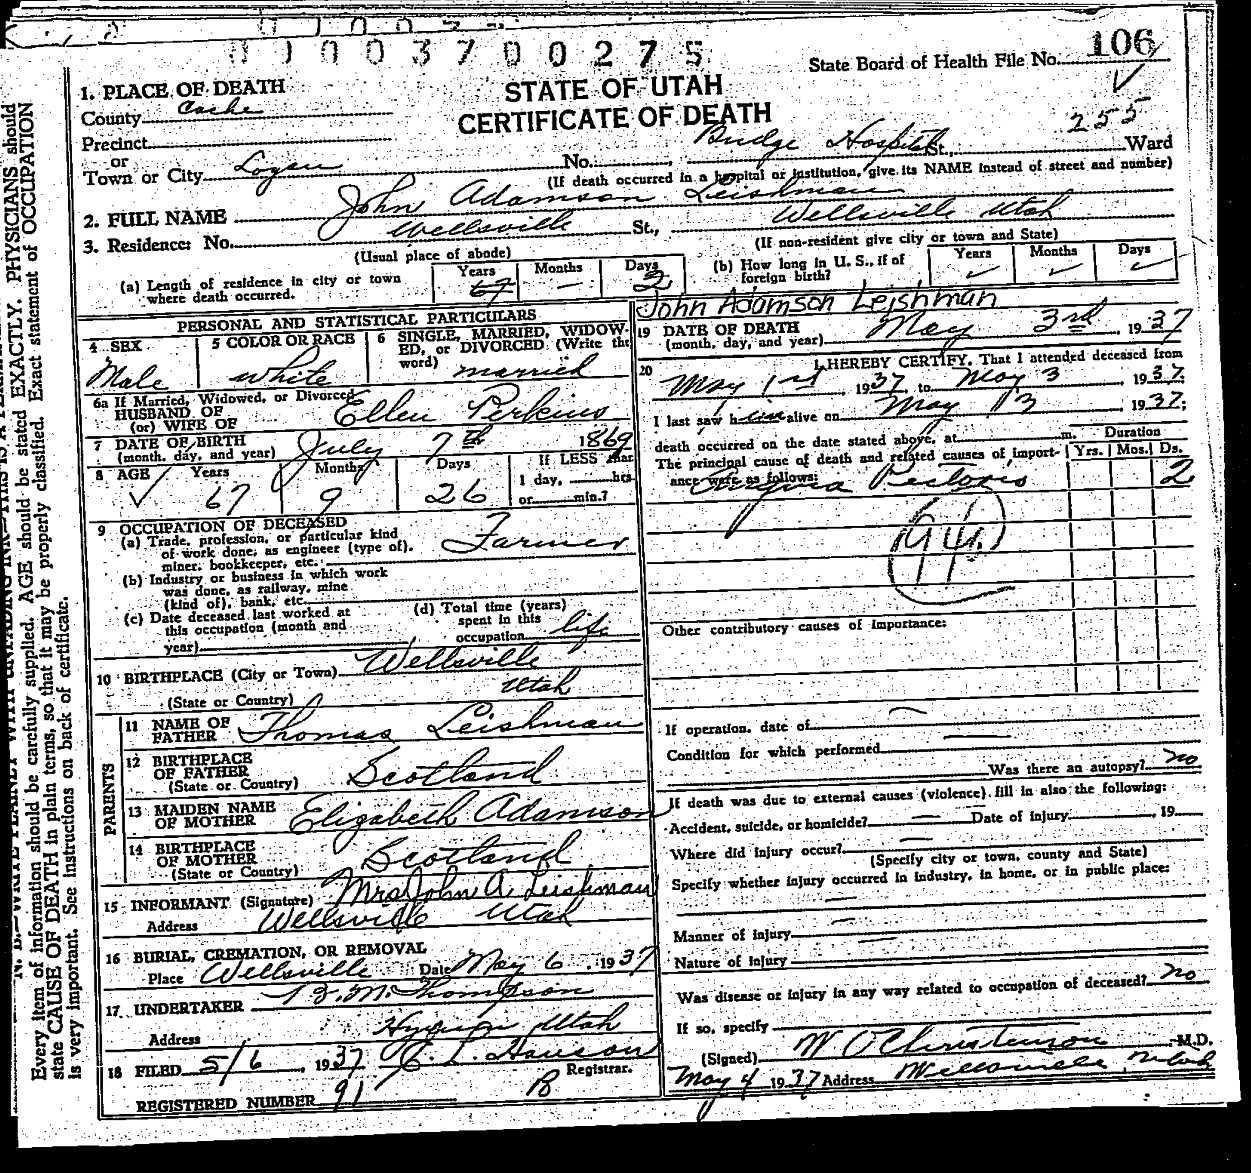 01003700275
106
State Board of Health File No.
255
STATE OF UTAH
CERTIFICATE OF DEATH
1. PLACE OF DEATH
County Cache
Precinct
or
Town or City Logan No. Budge Hospital St., Ward
(If death occurred in a hospital or institution, give its NAME instead of street and number)
2. FULL NAME John Adamson Leishman
3. Residence: No. Wellsville St., Wellsville Utah
(Usual place of abode) (If non-resident give city or town and State)
(a) Length of residence in city or town where death occurred. Years 67 Months – Days 2
(b) How long in U. S., if of foreign birth? Years ✓ Months ✓ Days ✓
PERSONAL AND STATISTICAL PARTICULARS
4 SEX Male
5 COLOR OR RACE White
6 SINGLE, MARRIED, WIDOWED, or DIVORCED (Write the word) married
6a If Married, Widowed, or Divorced
HUSBAND OF
(or) WIFE OF Ellen Perkins
7 DATE OF BIRTH
(month, day, and year) July 7th 1869
8 AGE Years 67 Months 9 Days 26 If LESS than 1 day, hrs. or min.?
9 OCCUPATION OF DECEASED
(a) Trade, profession, or particular kind
of work done, as engineer (type of),
miner, bookkeeper, etc. Farmer
(b) Industry or business in which work
was done, as railway, mine
(kind of), bank, etc.
(c) Date deceased last worked at
this occupation (month and
year)
(d) Total time (years)
spent in this
occupation life
10 BIRTHPLACE (City or Town) Wellsville
(State or Country) Utah
PARENTS
11 NAME OF FATHER Thomas Leishman
12 BIRTHPLACE OF FATHER
(State or Country) Scotland
13 MAIDEN NAME OF MOTHER Elizabeth Adamson
14 BIRTHPLACE OF MOTHER
(State or Country) Scotland
15 INFORMANT (Signature) Mrs John A. Leishman
Address Wellsville Utah
16 BURIAL, CREMATION, OR REMOVAL
Place Wellsville Date May 6, 1937
17 UNDERTAKER M. Thompson
Address Hyrum Utah
18 FILED 5/6, 1937 Hanson
Registrar.
REGISTERED NUMBER 91 B
John Adamson Leishman
19 DATE OF DEATH
(month, day, and year) May 3rd, 1937
20 I HEREBY CERTIFY, That I attended deceased from
May 1st 1937 to May 3, 1937.
I last saw him alive on May 3, 1937;
death occurred on the date stated above, at m.
The principal cause of death and related causes of importance were as follows:
Duration
Yrs. Mos. Ds.
Angina Pectoris 2
94
Other contributory causes of importance:
If operation, date of –
Condition for which performed –
Was there an autopsy? no
If death was due to external causes (violence) fill in also the following:
Accident, suicide, or homicide? – Date of injury, 19
Where did injury occur? –
(Specify city or town, county and State)
Specify whether injury occurred in industry, in home, or in public place:
Manner of injury –
Nature of injury –
Was disease or injury in any way related to occupation of deceased? no
If so, specify –
(Signed) W O Christenson M.D.
May 4 1937 Address Wellsville, Utah
Every item of information should be carefully supplied. AGE should be stated EXACTLY. PHYSICIANS should
state CAUSE OF DEATH in plain terms, so that it may be properly classified. Exact statement of OCCUPATION
is very important. See instructions on back of certificate.